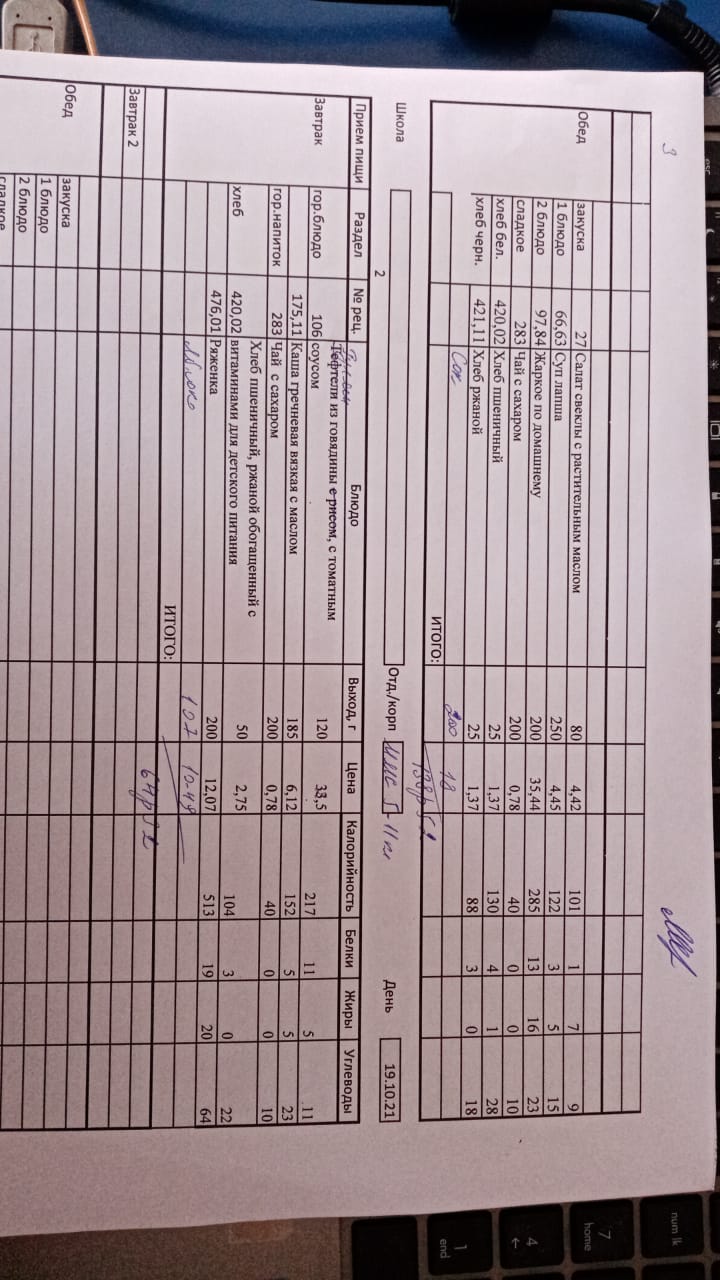 3
Обед закуска 27 Салат свеклы с растительным маслом 80 4,42 101 1 7 9
1 блюдо 66,63 Суп лапша 250 4,45 122 3 5 15
2 блюдо 97,84 Жаркое по домашнему 200 35,44 285 13 16 23
сладкое 283 Чай с сахаром 200 0,78 40 0 0 10
хлеб бел. 420,02 Хлеб пшеничный 25 1,37 130 4 1 28
хлеб черн. 421,11 Хлеб ржаной 25 1,37 88 3 0 18
Сок 200 18
ИТОГО:
Школа 2 Отд./корп 5-11 кл День 19.10.21
Прием пищи Раздел № рец. Блюдо Выход, г Цена Калорийность Белки Жиры Углеводы
Тефтели из говядины с рисом, с томатным
Завтрак гор.блюдо 106 соусом 120 33,5 217 11 5 11
175,11 Каша гречневая вязкая с маслом 185 6,12 152 5 5 23
гор.напиток 283 Чай с сахаром 200 0,78 40 0 0 10
Хлеб пшеничный, ржаной обогащенный с
хлеб 420,02 витаминами для детского питания 50 2,75 104 3 0 22
476,01 Ряженка 200 12,07 513 19 20 64
Яблоко 107 10-49
ИТОГО:
Завтрак 2
Обед закуска
1 блюдо
2 блюдо
сладкое